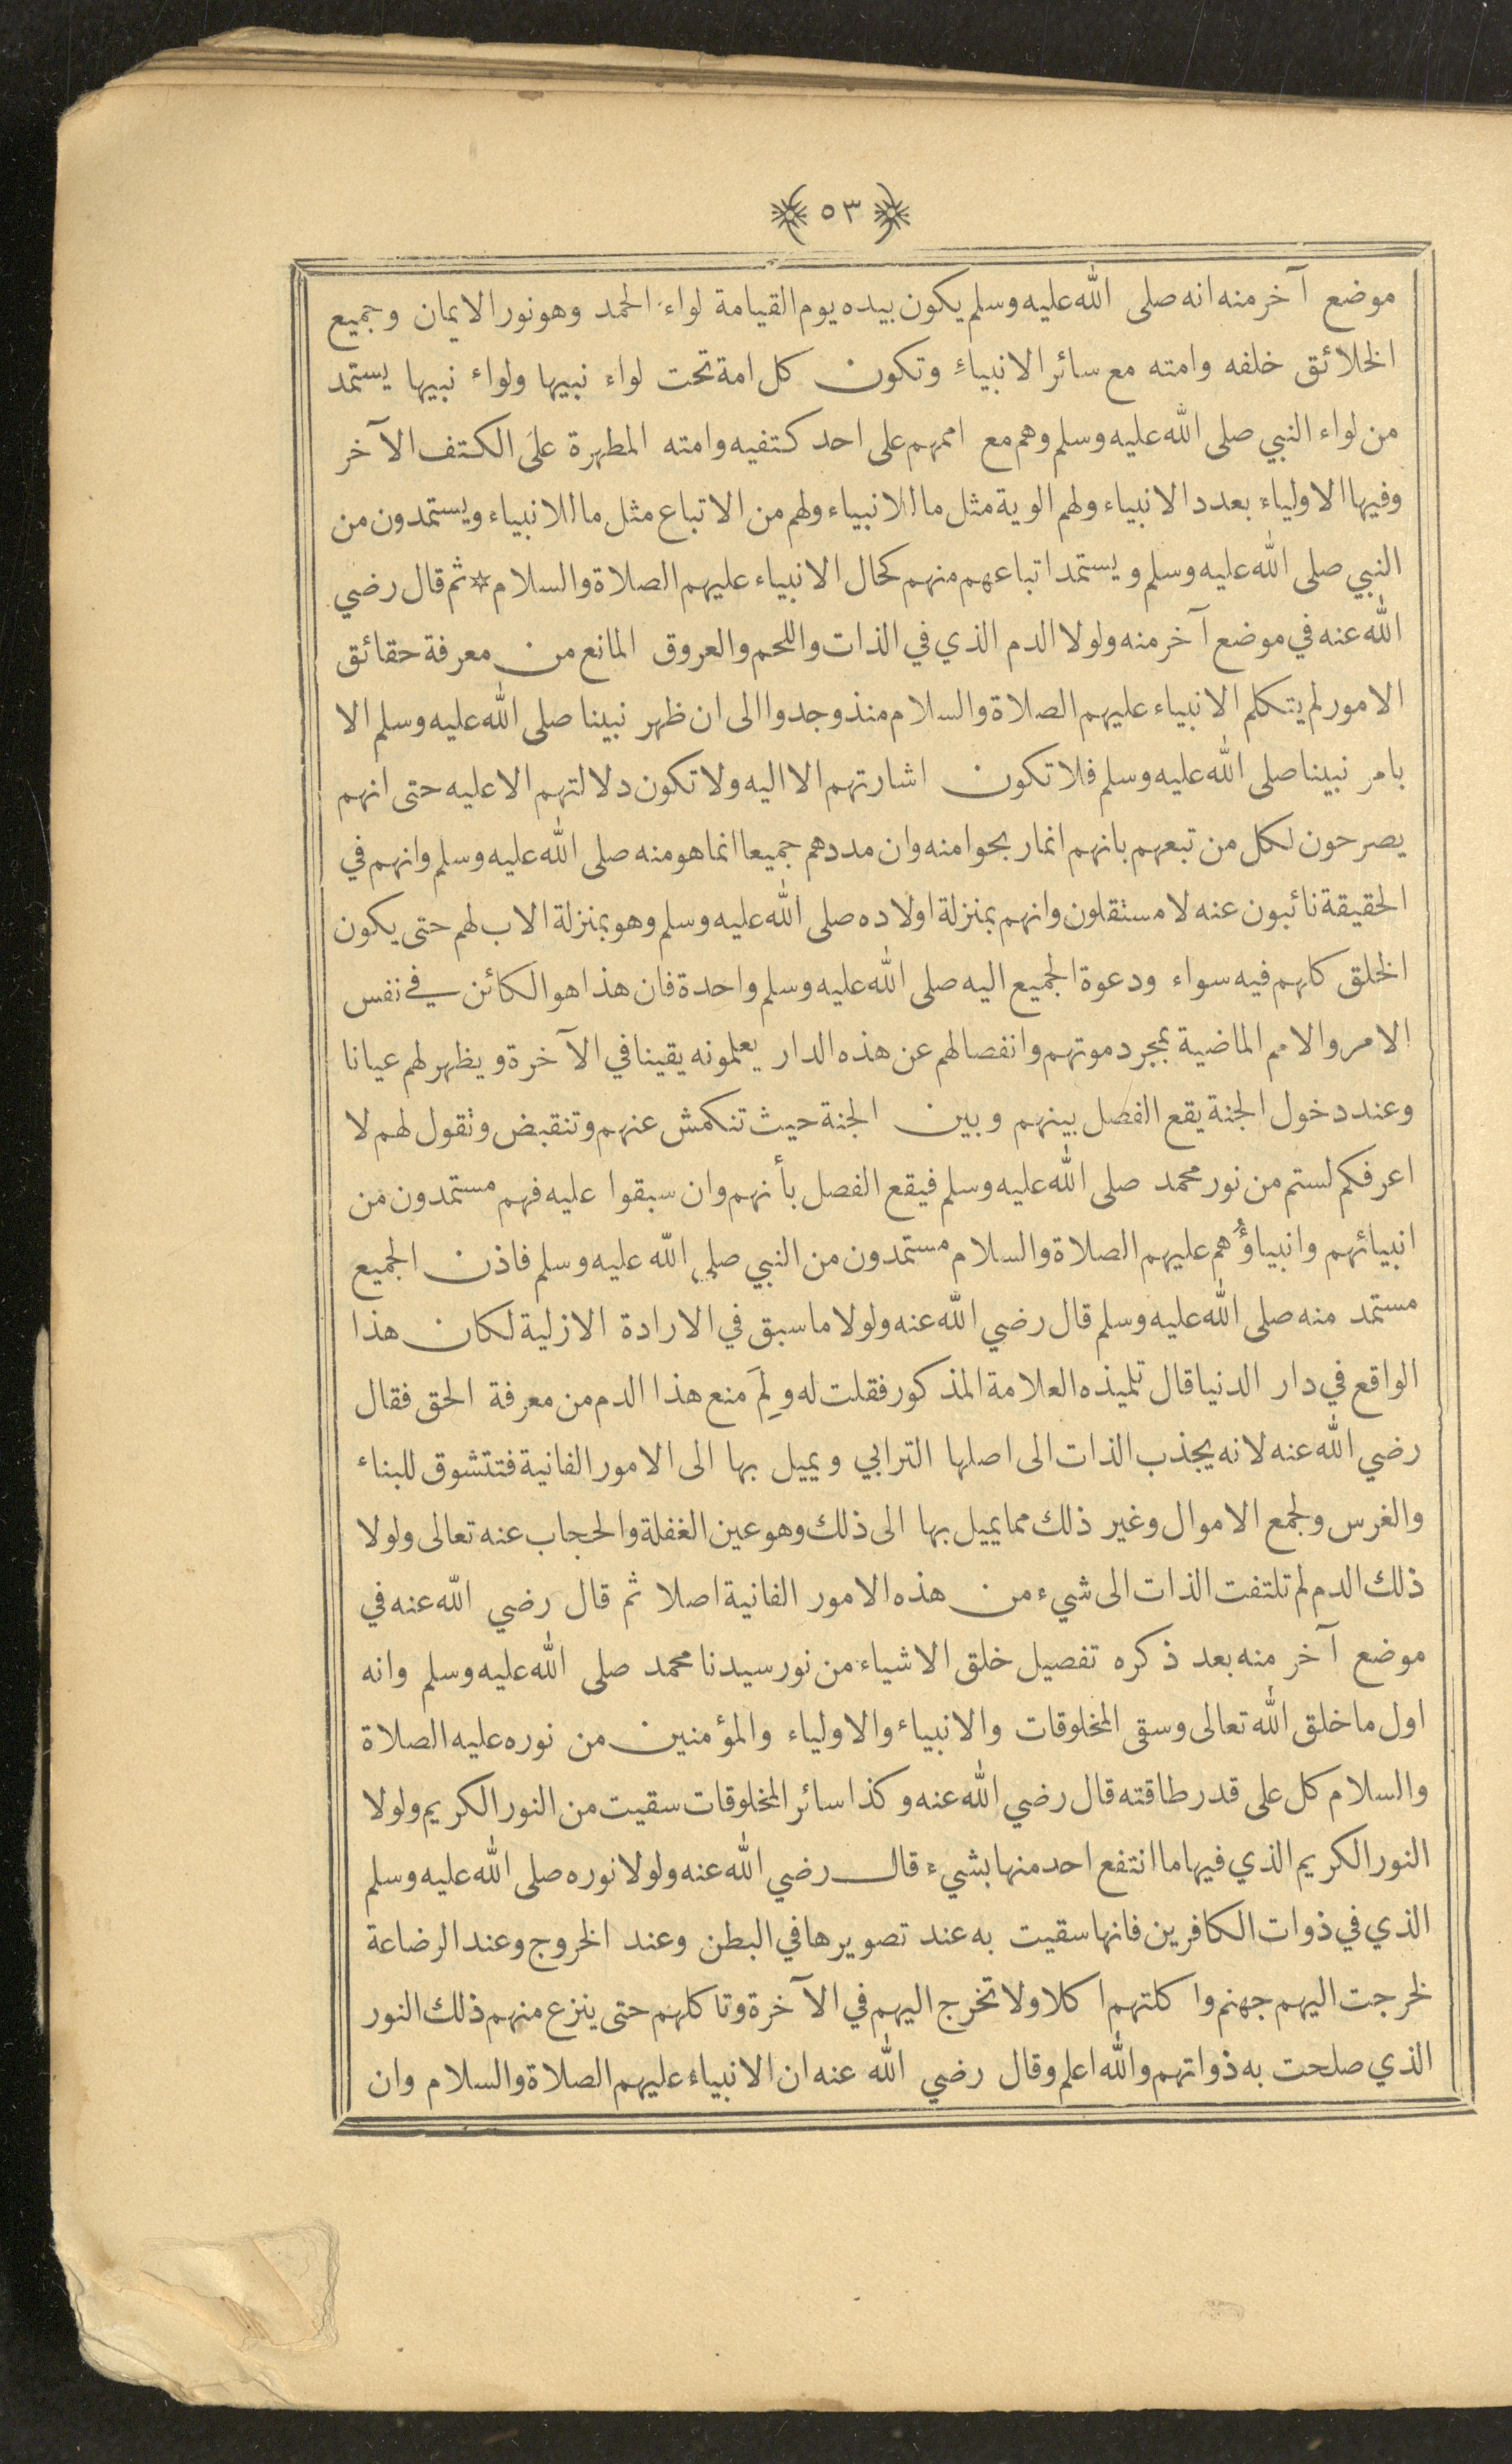 ﴿ ٥٣ ﴾
موضع آخر منه انه صلى الله عليه وسلم يكون بيده يوم القيامة لواء الحمد وهو نور الايمان وجميع
الخلائق خلفه وامته مع سائر الانبياء وتكون كل امة تحت لواء نبيها ولواء نبيها يستمد
من لواء النبي صلى الله عليه وسلم وهم مع اممهم على احد كتفيه وامته المطهرة على الكتف الآخر
وفيها الاولياء بعدد الانبياء ولهم الوية مثل ما للانبياء ولهم من الاتباع مثل ما للانبياء ويستمدون من
النبي صلى الله عليه وسلم ويستمد اتباعهم منهم كحال الانبياء عليهم الصلاة والسلام * ثم قال رضي
الله عنه في موضع آخر منه ولولا الدم الذي في الذات واللحم والعروق المانع من معرفة حقائق
الامور لم يتكلم الانبياء عليهم الصلاة والسلام منذ وجدوا الى ان ظهر نبينا صلى الله عليه وسلم الا
بامر نبينا صلى الله عليه وسلم فلا تكون اشارتهم الا اليه ولا تكون دلالتهم الا عليه حتى انهم
يصرحون لكل من تبعهم بانهم انما ربحوا منه وان مددهم جميعا انما هو منه صلى الله عليه وسلم وانهم في
الحقيقة نائبون عنه لا مستقلون وانهم بمنزلة اولاده صلى الله عليه وسلم وهو بمنزلة الاب لهم حتى يكون
الخلق كلهم فيه سواء ودعوة الجميع اليه صلى الله عليه وسلم واحدة فان هذا هو الكائن في نفس
الامر والامم الماضية بمجرد موتهم وانفصالهم عن هذه الدار يعلمونه يقينا في الآخرة ويظهر لهم عيانا
وعند دخول الجنة يقع الفصل بينهم وبين الجنة حيث تنكمش عنهم وتنقبض وتقول لهم لا
اعرفكم لستم من نور محمد صلى الله عليه وسلم فيقع الفصل بأنهم وان سبقوا عليه فهم مستمدون من
انبيائهم وانبياؤُهم عليهم الصلاة والسلام مستمدون من النبي صلى الله عليه وسلم فاذن الجميع
مستمد منه صلى الله عليه وسلم قال رضي الله عنه ولولا ما سبق في الارادة الازلية لكان هذا
الواقع في دار الدنيا قال تلميذه العلامة المذكور فقلت له ولِمَ منع هذا الدم من معرفة الحق فقال
رضي الله عنه لانه يجذب الذات الى اصلها الترابي ويميل بها الى الامور الفانية فتتشوق للبناء
والغرس ولجمع الاموال وغير ذلك مما يميل بها الى ذلك وهو عين الغفلة والحجاب عنه تعالى ولولا
ذلك الدم لم تلتفت الذات الى شيء من هذه الامور الفانية اصلا ثم قال رضي الله عنه في
موضع آخر منه بعد ذكره تفصيل خلق الاشياء من نور سيدنا محمد صلى الله عليه وسلم وانه
اول ما خلق الله تعالى وسقى المخلوقات والانبياء والاولياء والمؤمنين من نوره عليه الصلاة
والسلام كل على قدر طاقته قال رضي الله عنه وكذا سائر المخلوقات سقيت من النور الكريم ولولا
النور الكريم الذي فيها ما انتفع احد منها بشيء قال رضي الله عنه ولولا نوره صلى الله عليه وسلم
الذي في ذوات الكافرين فانها سقيت به عند تصويرها في البطن وعند الخروج وعند الرضاعة
لخرجت اليهم جهنم واكلتهم اكلا ولا تخرج اليهم في الآخرة وتاكلهم حتى ينزع منهم ذلك النور
الذي صلحت به ذواتهم والله اعلم وقال رضي الله عنه ان الانبياء عليهم الصلاة والسلام وان